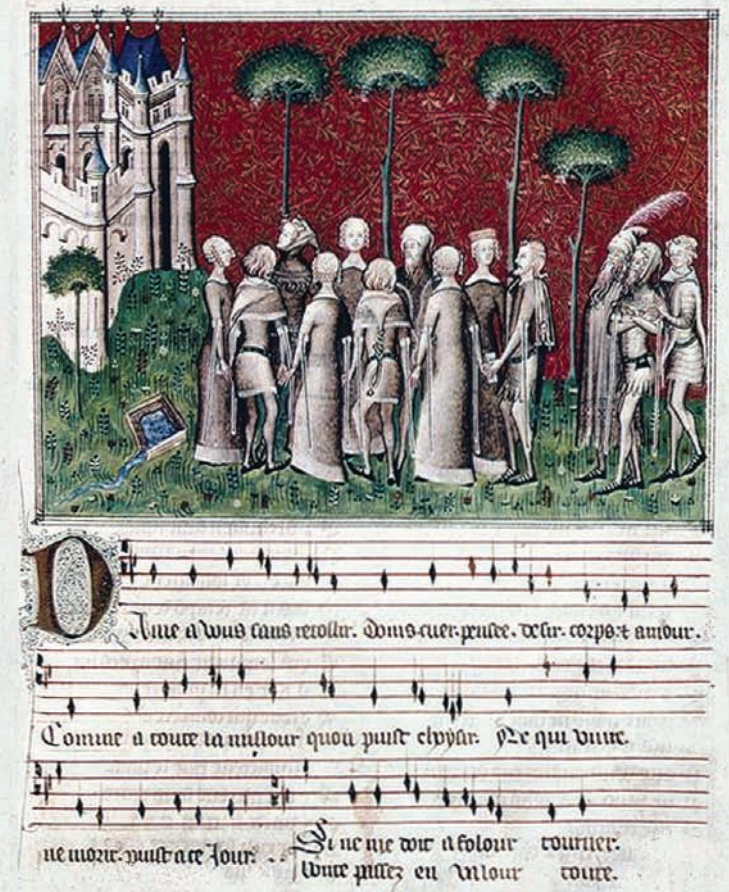 Dame a vous sans retollir. Doins. cuer. pensee. desir. corps. & amour.
Comme a toute la millour quon puist choysir. Ne qui viure.
ne morir. puist a ce Jour.
Si ne me doit a folour tourner.
Vous passez en valour toute.